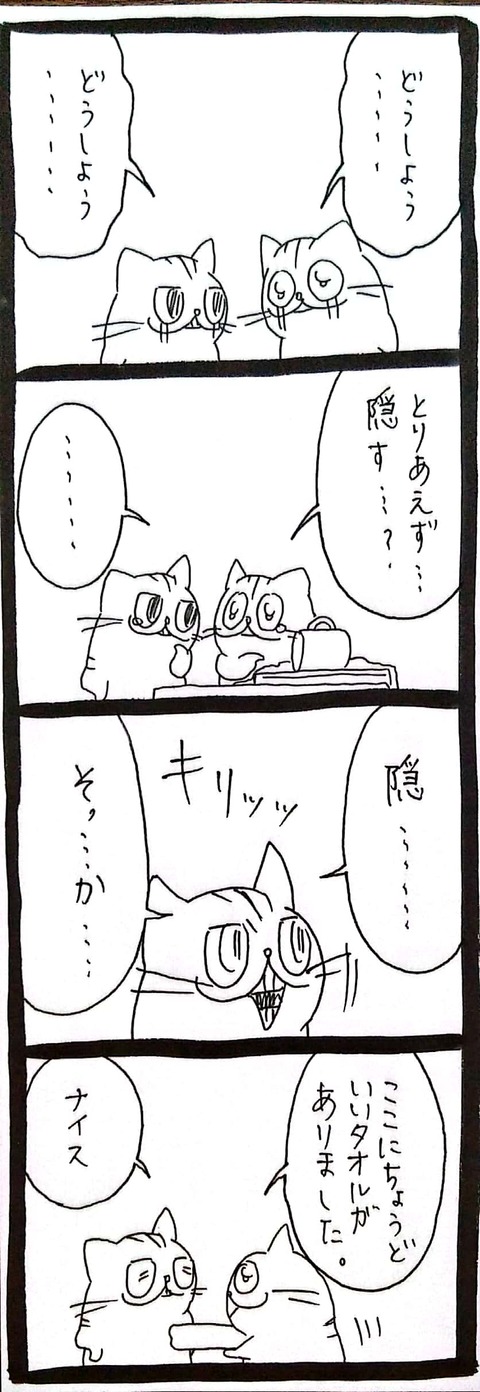 どうしよう
……
どうしよう
……
とりあえず…
隠す…？
……
隠
……
キリッッ
そっ…か…
ここにちょうど
いいタオルが
ありました。
ナイス